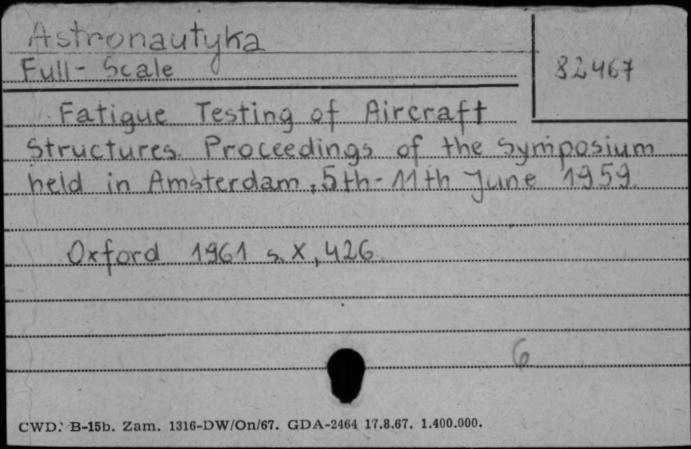 Astronautyka
Full-Scale
82467
Fatigue Testing of Aircraft
Structures. Proceedings of the Symposium
held in Amsterdam, 5th-11th June 1959.
Oxford 1961 s. X, 426.
6
CWD. B-15b. Zam. 1316-DW/On/67. GDA-2464 17.8.67. 1.400.000.